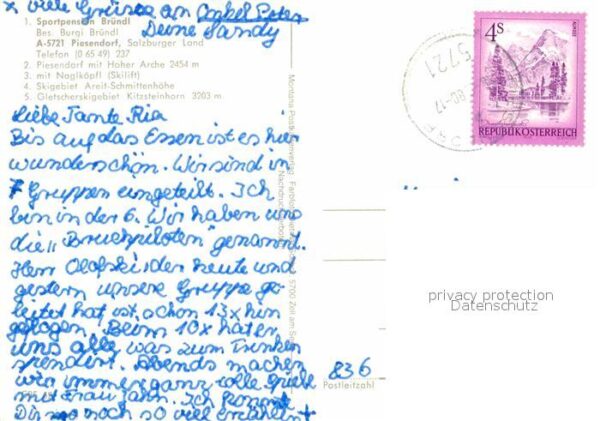 x viele Grüsse an Onkel Peter
Deine Sandy
1. Sportpension Bründl
Bes. Burgi Bründl
A-5721 Piesendorf, Salzburger Land
Telefon (0 65 49) 237
2. Piesendorf mit Hoher Arche 2454 m
3. mit Naglköpfl (Skilift)
4. Skigebiet Areit-Schmittenhöhe
5. Gletscherskigebiet Kitzsteinhorn 3203 m.
Liebe Tante Ria
Bis auf das Essen ist es hier
wunderschön. Wir sind in
7 Gruppen eingeteilt. Ich
bin in der 6. Wir haben uns
die "Bruchpiloten" genannt.
Herr der heute und
gestern unsere Gruppe ge
leitet hat ist schon 13x hin
geflogen. Beim 10x hat er
uns alle was zum Trinken
spendirt. Abends machen
wir immer ganz tolle Spiele
mit Frau Jahn. Ich
Dir noch so viel erzählen +
4S
REPUBLIK ÖSTERREICH
5721
80-17
836
Postleitzahl
5700 Zell am
privacy protection
Datenschutz